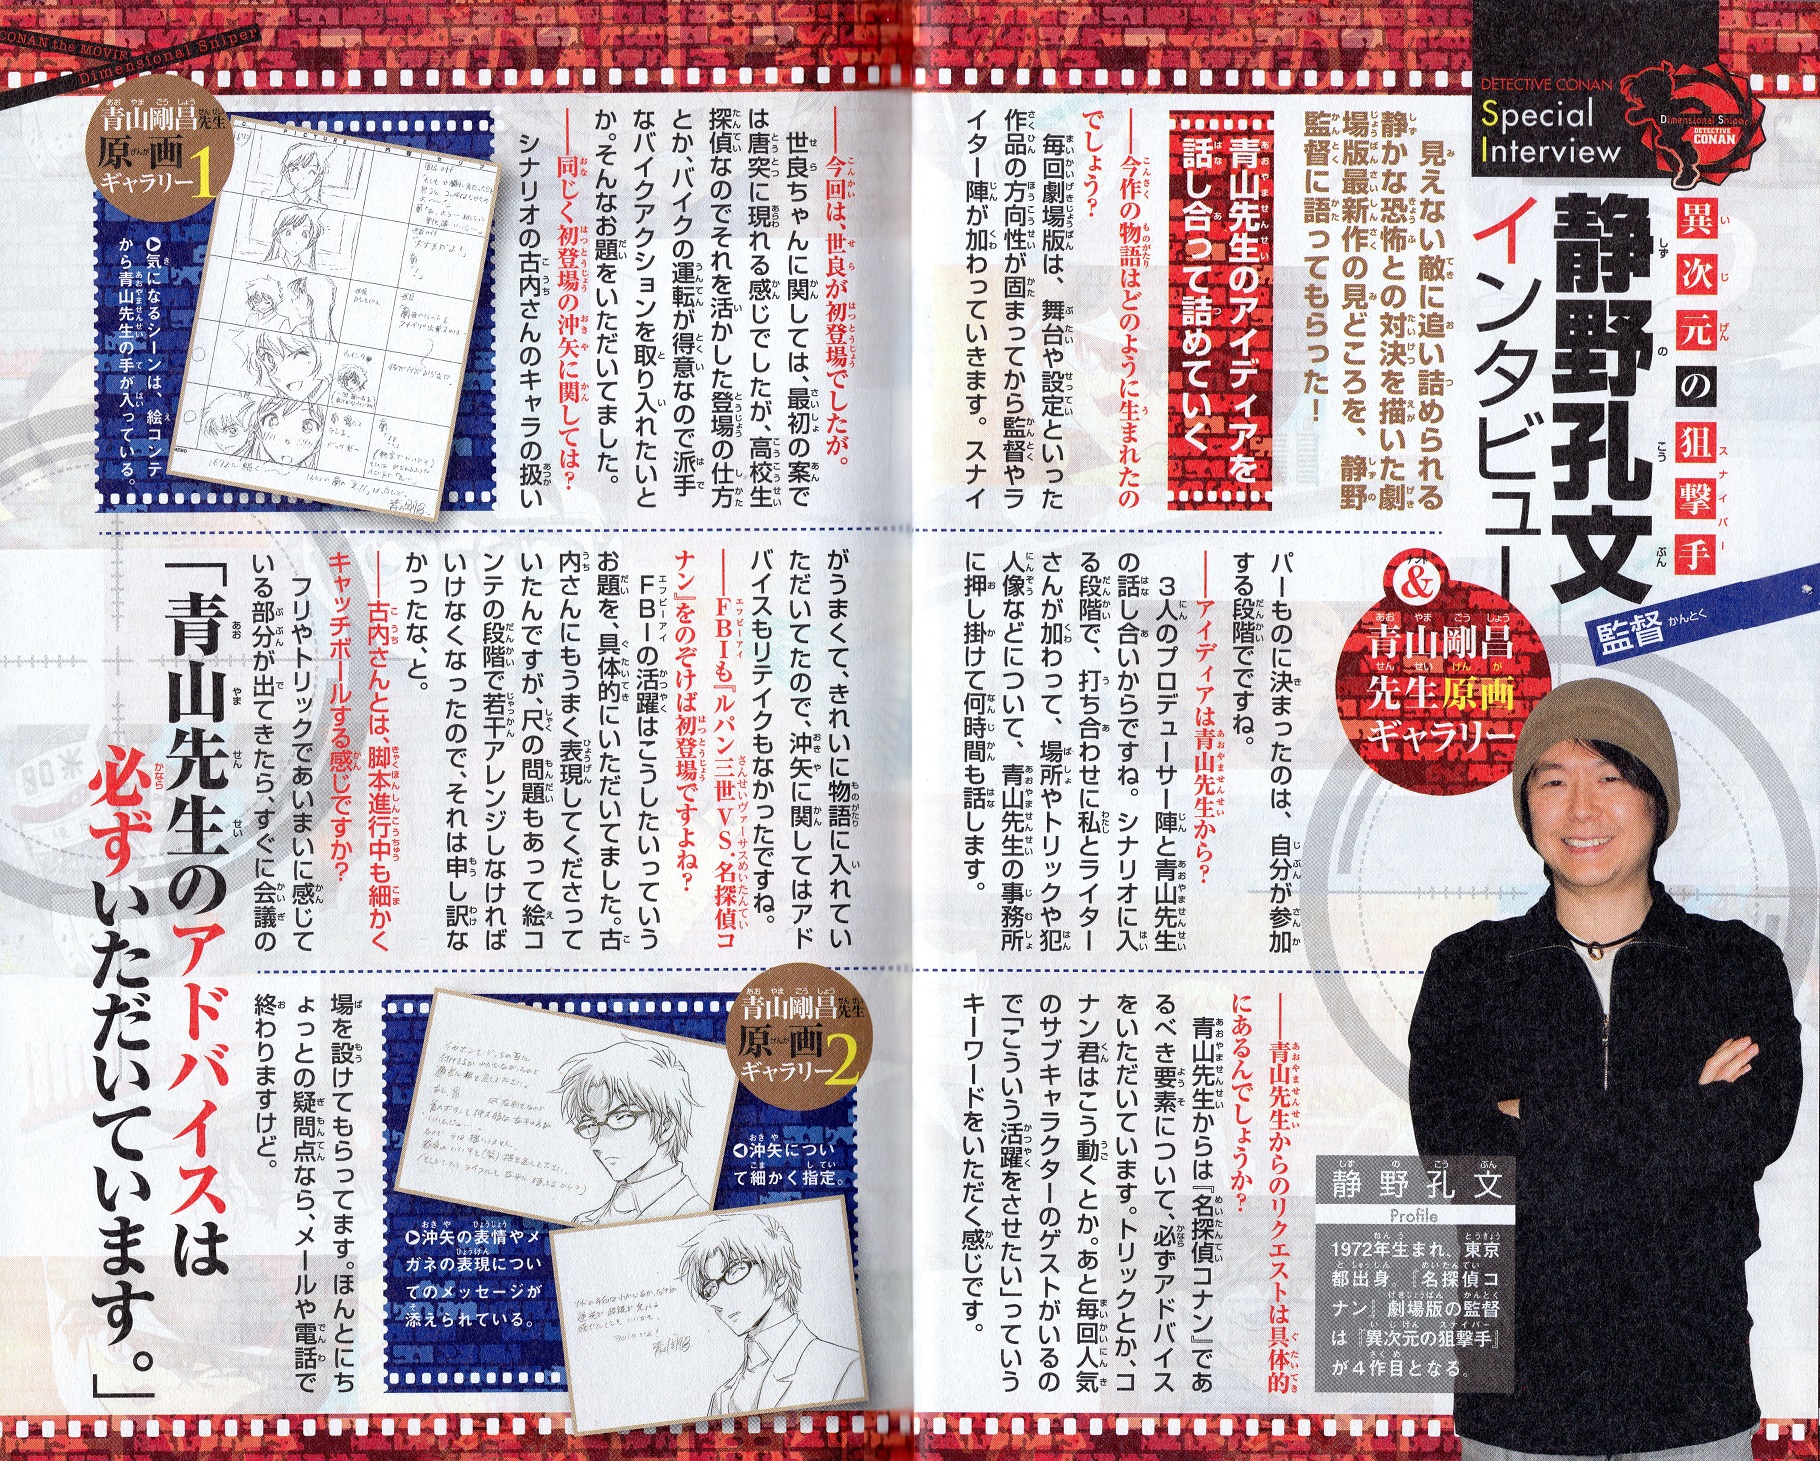 CONAN the MOVIE
Dimensional Sniper
DETECTIVE CONAN
Special
Interview
Dimensional Sniper
DETECTIVE
CONAN
異次元の狙撃手
静野孔文
インタビュー
監督
&
青山剛昌
先生原画
ギャラリー
見えない敵に追い詰められる
静かな恐怖との対決を描いた劇
場版最新作の見どころを、静野
監督に語ってもらった!
青山先生のアイディアを
話し合って詰めていく
――今作の物語はどのように生まれたの
でしょう?
毎回劇場版は、舞台や設定といった
作品の方向性が固まってから監督やラ
イター陣が加わっていきます。スナイ
パーものに決まったのは、自分が参加
する段階でですね。
――アイディアは青山先生から?
3人のプロデューサー陣と青山先生
の話し合いからですね。シナリオに入
る段階で、打ち合わせに私とライター
さんが加わって、場所やトリックや犯
人像などについて、青山先生の事務所
に押し掛けて何時間も話します。
――青山先生からのリクエストは具体的
にあるんでしょうか?
青山先生からは『名探偵コナン』であ
るべき要素について、必ずアドバイス
をいただいています。トリックとか、コ
ナン君はこう動くとか。あと毎回人気
のサブキャラクターのゲストがいるの
で「こういう活躍をさせたい」っていう
キーワードをいただく感じです。
静野孔文
Profile
1972年生まれ、東京
都出身。『名探偵コ
ナン』劇場版の監督
は『異次元の狙撃手』
が4作目となる。
――今回は、世良が初登場でしたが。
世良ちゃんに関しては、最初の案で
は唐突に現れる感じでしたが、高校生
探偵なのでそれを活かした登場の仕方
とか、バイクの運転が得意なので派手
なバイクアクションを取り入れたいと
か。そんなお題をいただいてました。
――同じく初登場の沖矢に関しては?
シナリオの古内さんのキャラの扱い
がうまくて、きれいに物語に入れてい
ただいてたので、沖矢に関してはアド
バイスもリテイクもなかったですね。
――FBIも『ルパン三世VS.名探偵コ
ナン』をのぞけば初登場ですよね?
FBIの活躍はこうしたいっていう
お題を、具体的にいただいてました。古
内さんにもうまく表現してくださって
いたんですが、尺の問題もあって絵コ
ンテの段階で若干アレンジしなければ
いけなくなったので、それは申し訳な
かったな、と。
――古内さんとは、脚本進行中も細かく
キャッチボールする感じですか?
フリやトリックであいまいに感じて
いる部分が出てきたら、すぐに会議の
場を設けてもらってます。ほんとにち
ょっとの疑問点なら、メールや電話で
終わりますけど。
「青山先生のアドバイスは
必ずいただいています。」
青山剛昌先生
原画
ギャラリー1
▶気になるシーンは、絵コンテ
から青山先生の手が入っている。
青山剛昌先生
原画
ギャラリー2
◀沖矢につい
て細かく指定。
▶沖矢の表情やメ
ガネの表現につい
てのメッセージが
添えられている。